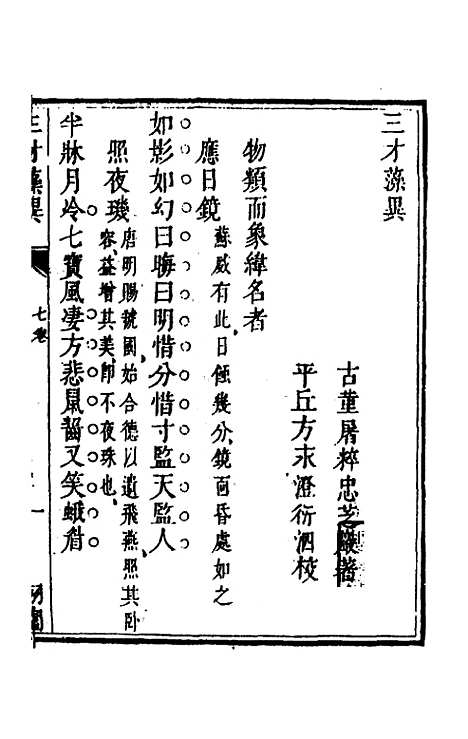 三才藻異
古董屠粹忠芝巖著
平丘方末澄衍泗校
物類而象緯名者
應日鏡 蘇威有此日蝕幾分鏡面昏處如之
如影如幻日晦日明惜分惜寸監天監人
照夜璣 唐明賜虢國始合德以遺飛燕照其卧
容益增其美卽不夜珠也
半牀月冷七寶風凄方悲鼠齧又笑蛾眉
三才藻異
七卷
一